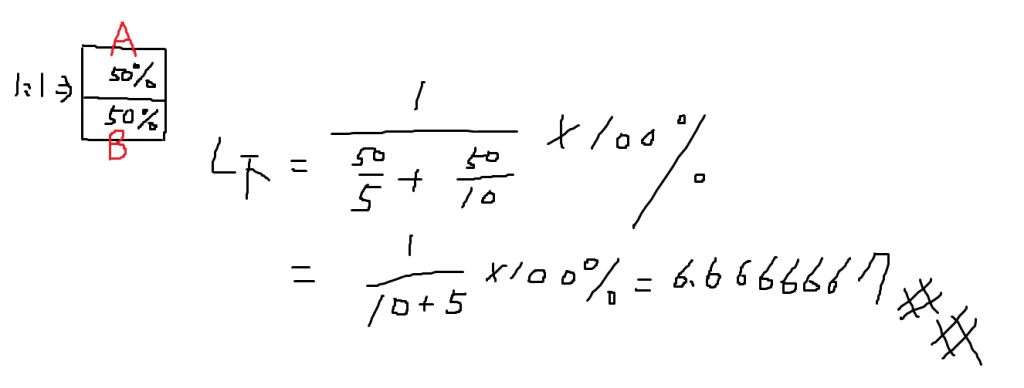 A
1:1 ⇒ 50%
50%
B
L下 = 1 / (50/5 + 50/10) × 100%
= 1 / (10+5) × 100% = 6.66666667 ##